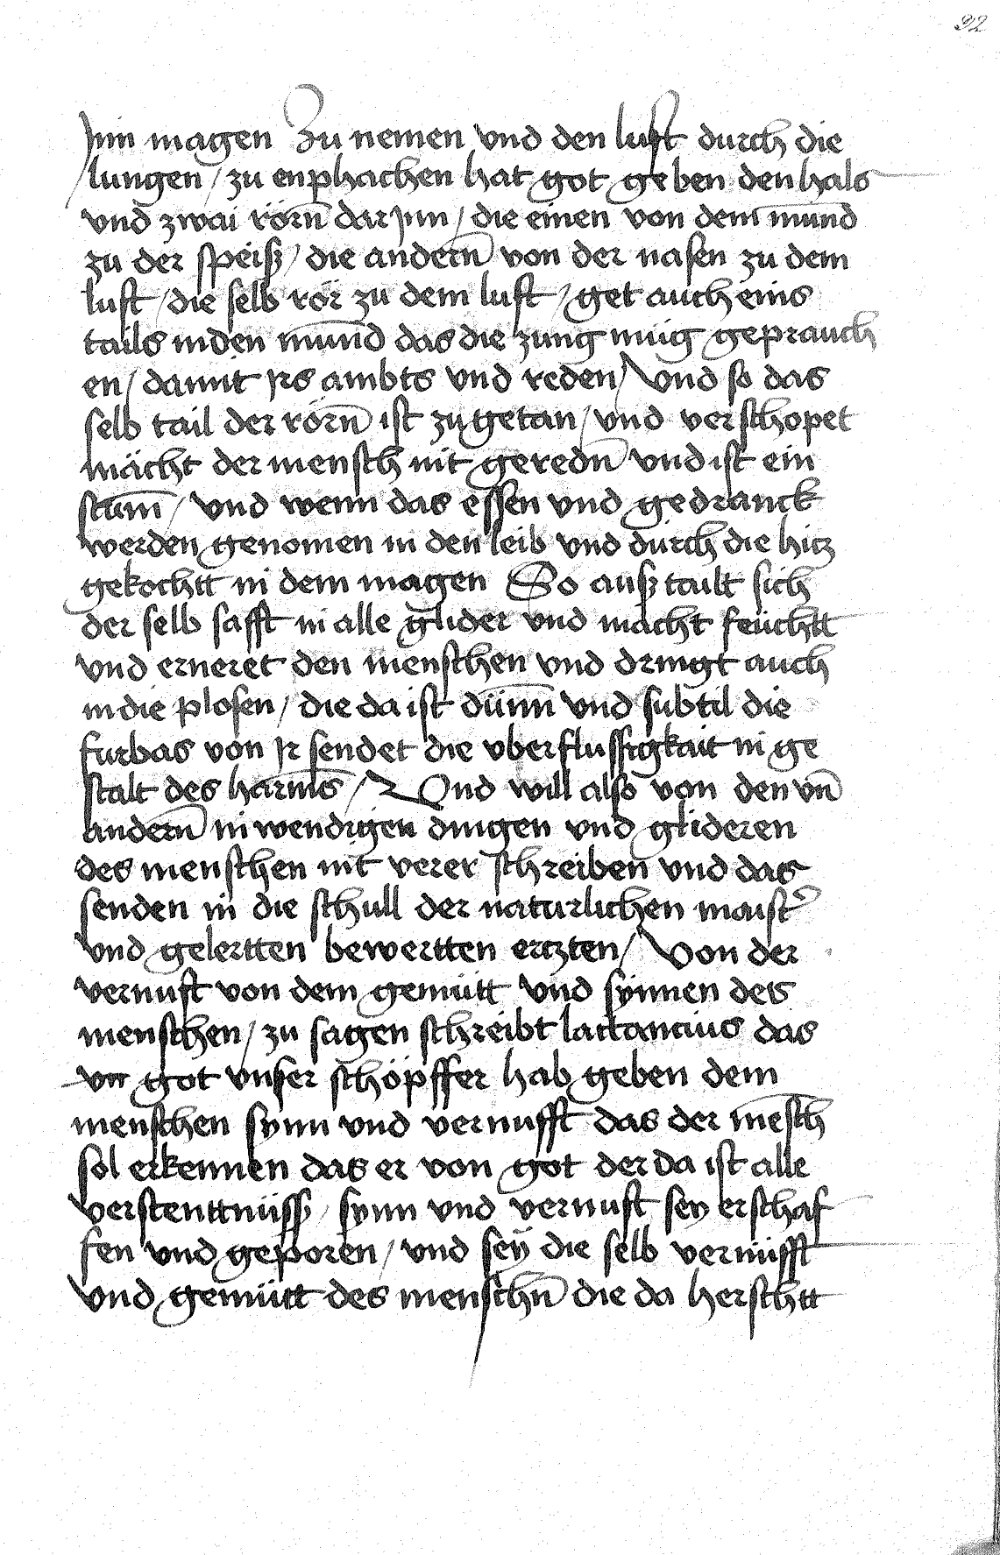 92
Jnn magen Zu nemen vnd den luft durch die
lungen / zu enphachen hat got geben den hals
vnd zwai rörn̄ dar Jnn / die einen von dem mūnd
zu der speiß / die andern̄ von der nasen zu dem
luft / die selb rör zu dem luft / get auch eins
tails in den mūnd das die zung müg geprauch
en / damit Jrs ambts vnd reden / Vnd so das
selb tail der rörn̄ ist zu getan / vnd verschopet
mächt der mensch nit geredn̄ vnd ist ein
stūm̄ / vnd wenn das essen vnd gedranck
werden genomen in den leib vnd durch die hicz
gekochtt in dem magen So auß tailt sich
der selb safft in alle glider vnd macht feüchtt
vnd erneret den menschen vnd dringt auch
in die plosen / die da ist dün̄n vnd subtil die
furbas von Jr sendet die vberflussigkait in ge
stalt des harm̄s / Vnd will also von den vn̄
andern̄ inwendigen dingen vnd glideren
des menschen nit verer schreiben vnd das
senden in die schull der naturlichen maist᾿
vnd gelertten bewertten erczten / Von der
vernuft von dem gemütt vnd synnen des
menschen / zu sagen schreibt lactancius das
vn got vnser schöpffer hab geben dem
menschen synn vnd vernufft das der mēsch
sol erkennen das er von got der da ist alle
verstenttnüss / synn vnd vernuft sey erschaf
fen vnd geporen / vnd seÿ die selb vernüfft
vnd gemütt des menschn̄ die da herschtt